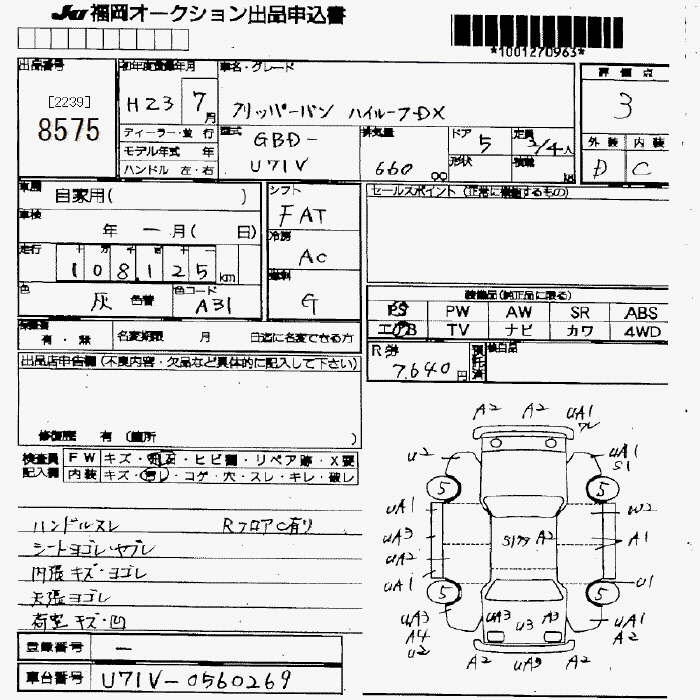 JU 福岡オークション出品申込書
*1001270963*
出品番号 初年度登録年月 車名・グレード 評価点
[2239]
8575
H23 7月 クリッパーバン ハイルーフDX 3
ディーラー・並行 型式 排気量 ドア 定員 外装 内装
モデル年式 年 GBD- 5 2/4人 D C
ハンドル 左・右 U71V 660 cc 形状 積載 kg
車歴 自家用( ) シフト セールスポイント (正常に機能するもの)
車検 年 ー 月( 日) FAT
走行 冷房
108,125 km AC
色 灰 色替 色コード A31 燃料 G
装備品(純正品に限る)
PS PW AW SR ABS
エアB TV ナビ カワ 4WD
有・無 名変期限 月 日迄に名変できる方
R券 7,640円 預託済
出品店申告欄(不良内容・欠品など具体的に記入して下さい)
修復歴 有 (箇所 )
検査員 FW キズ・飛石・ヒビ割・リペア跡・X要
記入欄 内装 キズ・汚レ・コゲ・穴・スレ・キレ・破レ
ハンドルスレ RフロアC有り
シートヨゴレ・ヤブレ
内張キズ・ヨゴレ
天張ヨゴレ
荷室キズ・凹
A2 A2 UA1
U2 UA1
S1
5 5
UA1
UA3 A2 A1
UA2
UA1 U1
5 5
UA3 UA3 U3 A3 UA1
A4 A2
U2
A2 UA3 A2
登録番号 ー
車台番号 U71V-0560269